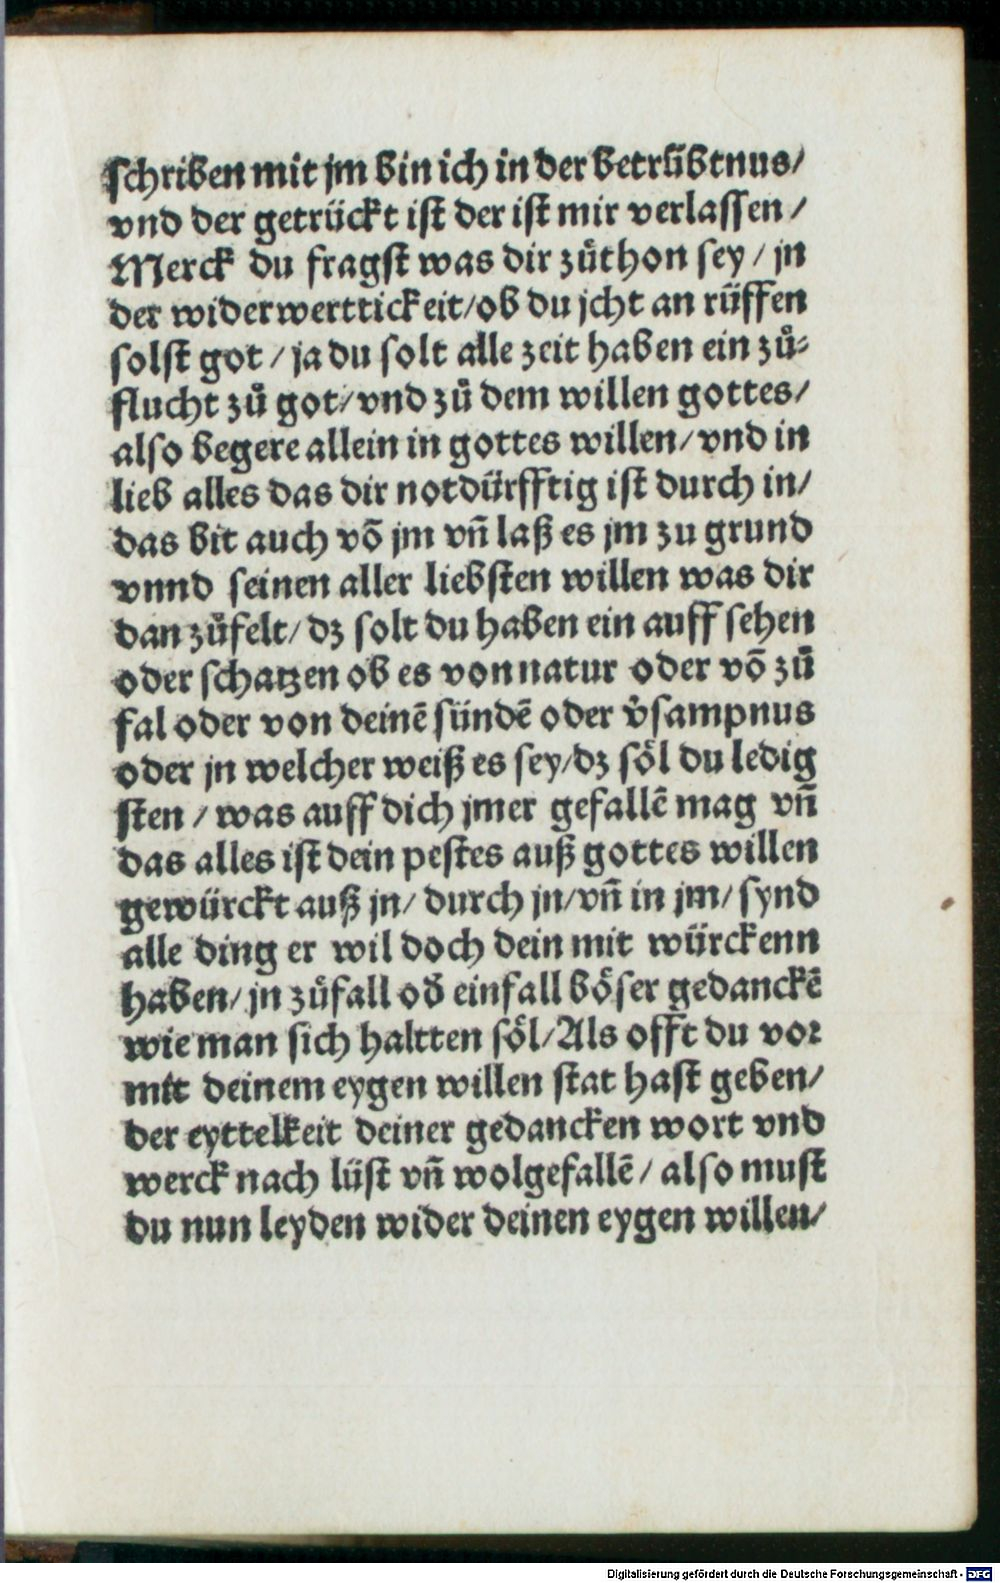 schriben mit jm bin ich in der betrübtnus/
vnd der getrückt ist der ist mir verlassen /
Merck du fragst was dir zůthon sey / jn
der widerwerttickeit/ob du jcht an rüffen
solst got / ja du solt alle zeit haben ein zů⸗
flucht zů got/vnd zů dem willen gottes/
also begere allein in gottes willen/vnd in
lieb alles das dir notdürfftig ist durch in/
das bit auch võ jm vñ laß es jm zu grund
vnnd seinen aller liebsten willen was dir
dan zůfelt/dz solt du haben ein auff sehen
oder schatzen ob es von natur oder võ zů
fal oder von deinẽ sündẽ oder v̓sampnus
oder jn welcher weiß es sey/dz söl du ledig
sten / was auff dich jmer gefallẽ mag vñ
das alles ist dein pestes auß gottes willen
gewürckt auß jn/ durch jn/vñ in jm/ synd
alle ding er wil doch dein mit würckenn
haben/jn zůfall od̓ einfall böser gedanckẽ
wie man sich haltten söl/Als offt du vor
mit deinem eygen willen stat hast geben/
der eyttelkeit deiner gedancken wort vnd
werck nach lüst vñ wolgefallẽ / also must
du nun leyden wider deinen eygen willen/
Digitalisierung gefördert durch die Deutsche Forschungsgemeinschaft - DFG